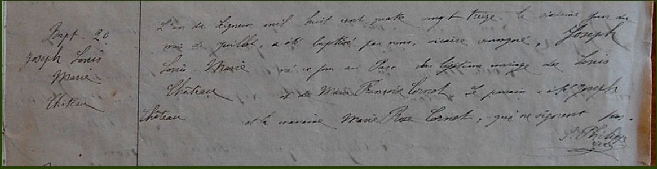 Bapt. 20
Joseph Louis
Marie
Château
L'an du Seigneur mil huit cent quatre vingt treize, le sixième jour du
mois de juillet, a été baptisé par nous, vicaire soussigné, Joseph
Louis Marie né ce jour au du légitime mariage de Louis
Château et de Marie Françoise Cornet. Le parrain a été Joseph
Château et la marraine Marie Rose Cornet, qui ne signent pas.